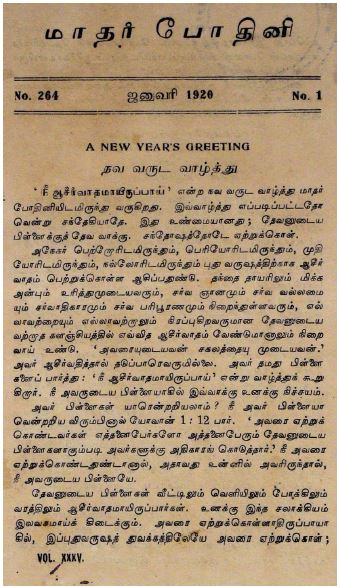 மாதர் போதினி
No. 264 ஜனவரி 1920 No. 1
A NEW YEAR'S GREETING
நவ வருட வாழ்த்து
'நீ ஆசீர்வாதமாயிருப்பாய்' என்ற நவ வருட வாழ்த்து மாதர்
போதினியிடமிருந்து வருகிறது. இவ்வாழ்த்து எப்படிப்பட்டதோ
வென்று சந்தேகியாதே. இது உண்மையானது; தேவனுடைய
பிள்ளைக்குத் தேவ வாக்கு. சந்தோஷத்தோடே ஏற்றுக்கொள்.
அநேகர் பெற்றோரிடமிருந்தும், பெரியோரிடமிருந்தும், முதி
யோரிடமிருந்தும், நல்லோரிடமிருந்தும் புது வருஷத்திற்காக ஆசீர்
வாதம் பெற்றுக்கொள்ள ஆசிப்பதுண்டு. தந்தை தாயரிலும் மிக்க
அன்பும் உரித்துமுடையவரும், சர்வ ஞானமும் சர்வ வல்லமை
யும் சர்வாதிகாரமும் சர்வ பரிபூரணமும் நிறைந்துள்ளவரும், எல்
லாவற்றையும் எல்லாவற்றாலும் நிரப்புகிறவருமான தேவனுடைய
வற்றாத களஞ்சியத்தில் எவ்வித ஆசீர்வாதம் வேண்டுமானாலும் நிறை
வாய் உண்டு. 'அவரையுடையவன் சகலத்தையு முடையவன்.'
அவர் ஆசீர்வதித்தால் தடுப்பாரெவருமில்லை. அவர் தமது பிள்ளை
களைப் பார்த்து: 'நீ ஆசீர்வாதமாயிருப்பாய்' என்று வாழ்த்துக் கூறு
கிறார். நீ அவருடைய பிள்ளையாகில் இவ்வாக்கு உனக்கு நிச்சயம்.
அவர் பிள்ளைகள் யாரென்றறியலாம்? நீ அவர் பிள்ளையா
வென்றறிய விரும்பினால் யோவான் 1: 12 பார். 'அவரை ஏற்றுக்
கொண்டவர்கள் எத்தனைபேர்களோ அத்தனைபேரும் தேவனுடைய
பிள்ளைகளாகும்படி அவர்களுக்கு அதிகாரங் கொடுத்தார்.' நீ அவரை
ஏற்றுக்கொண்டதுண்டானால், அதாவது உன்னில் அவரிருந்தால்,
நீ அவருடைய பிள்ளையே.
தேவனுடைய பிள்ளைகள் வீட்டிலும் வெளியிலும் போக்கிலும்
வரத்திலும் ஆசீர்வாதமாயிருப்பார்கள். உனக்கு இந்த சலாக்கியம்
இலவசமாய்க் கிடைக்கும். அவரை ஏற்றுக்கொள்ளாதிருப்பாயா
கில், இப்புதுவருஷத் துவக்கத்திலேயே அவரை ஏற்றுக்கொள்;
VOL. XXXV.